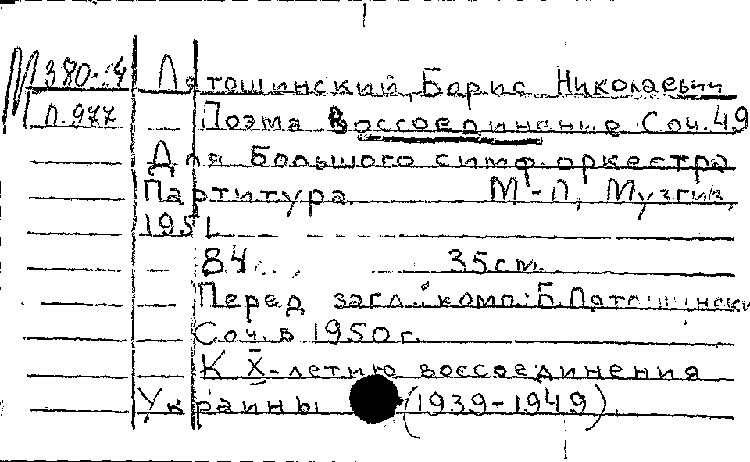 М380-54 Лятошинский, Борис Николаевич
Л.977 Поэма Воссоединение Соч. 49
Для большого симф. оркестра
Партитура. М-Л, Музгиз,
1951
84 35см.
Перед загл.: комп. Б. Лятошинский
Соч. в 1950 г.
К X-летию воссоединения
Украины (1939-1949).